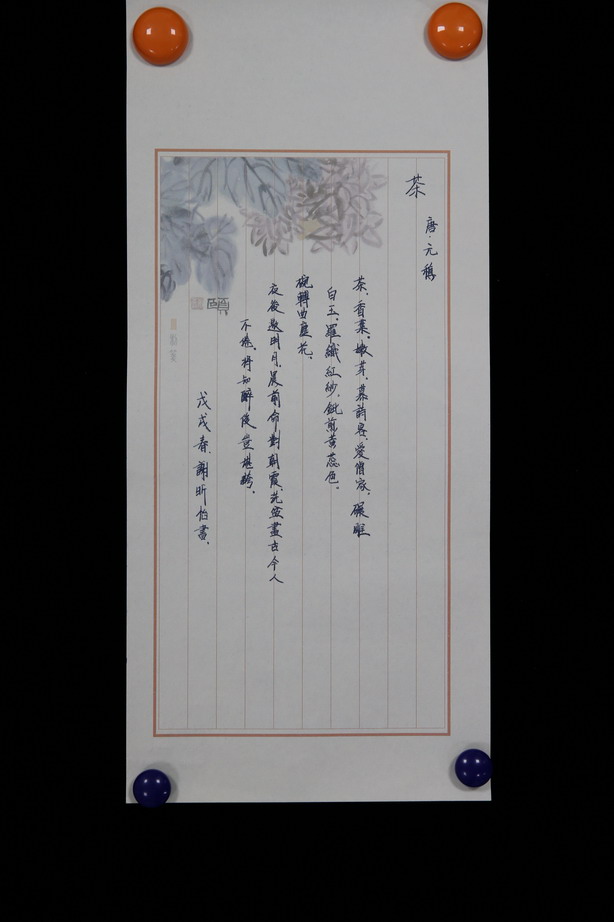 茶
唐·元稹
茶,香葉,嫩芽,慕詩客,愛僧家,碾雕
白玉,羅織紅紗,銚煎黄蕊色,
碗轉曲塵花,
夜後邀明月,晨前命對朝霞,洗盡古今人
不倦,將知醉後豈堪誇。
戊戌春,謝昕怡書,